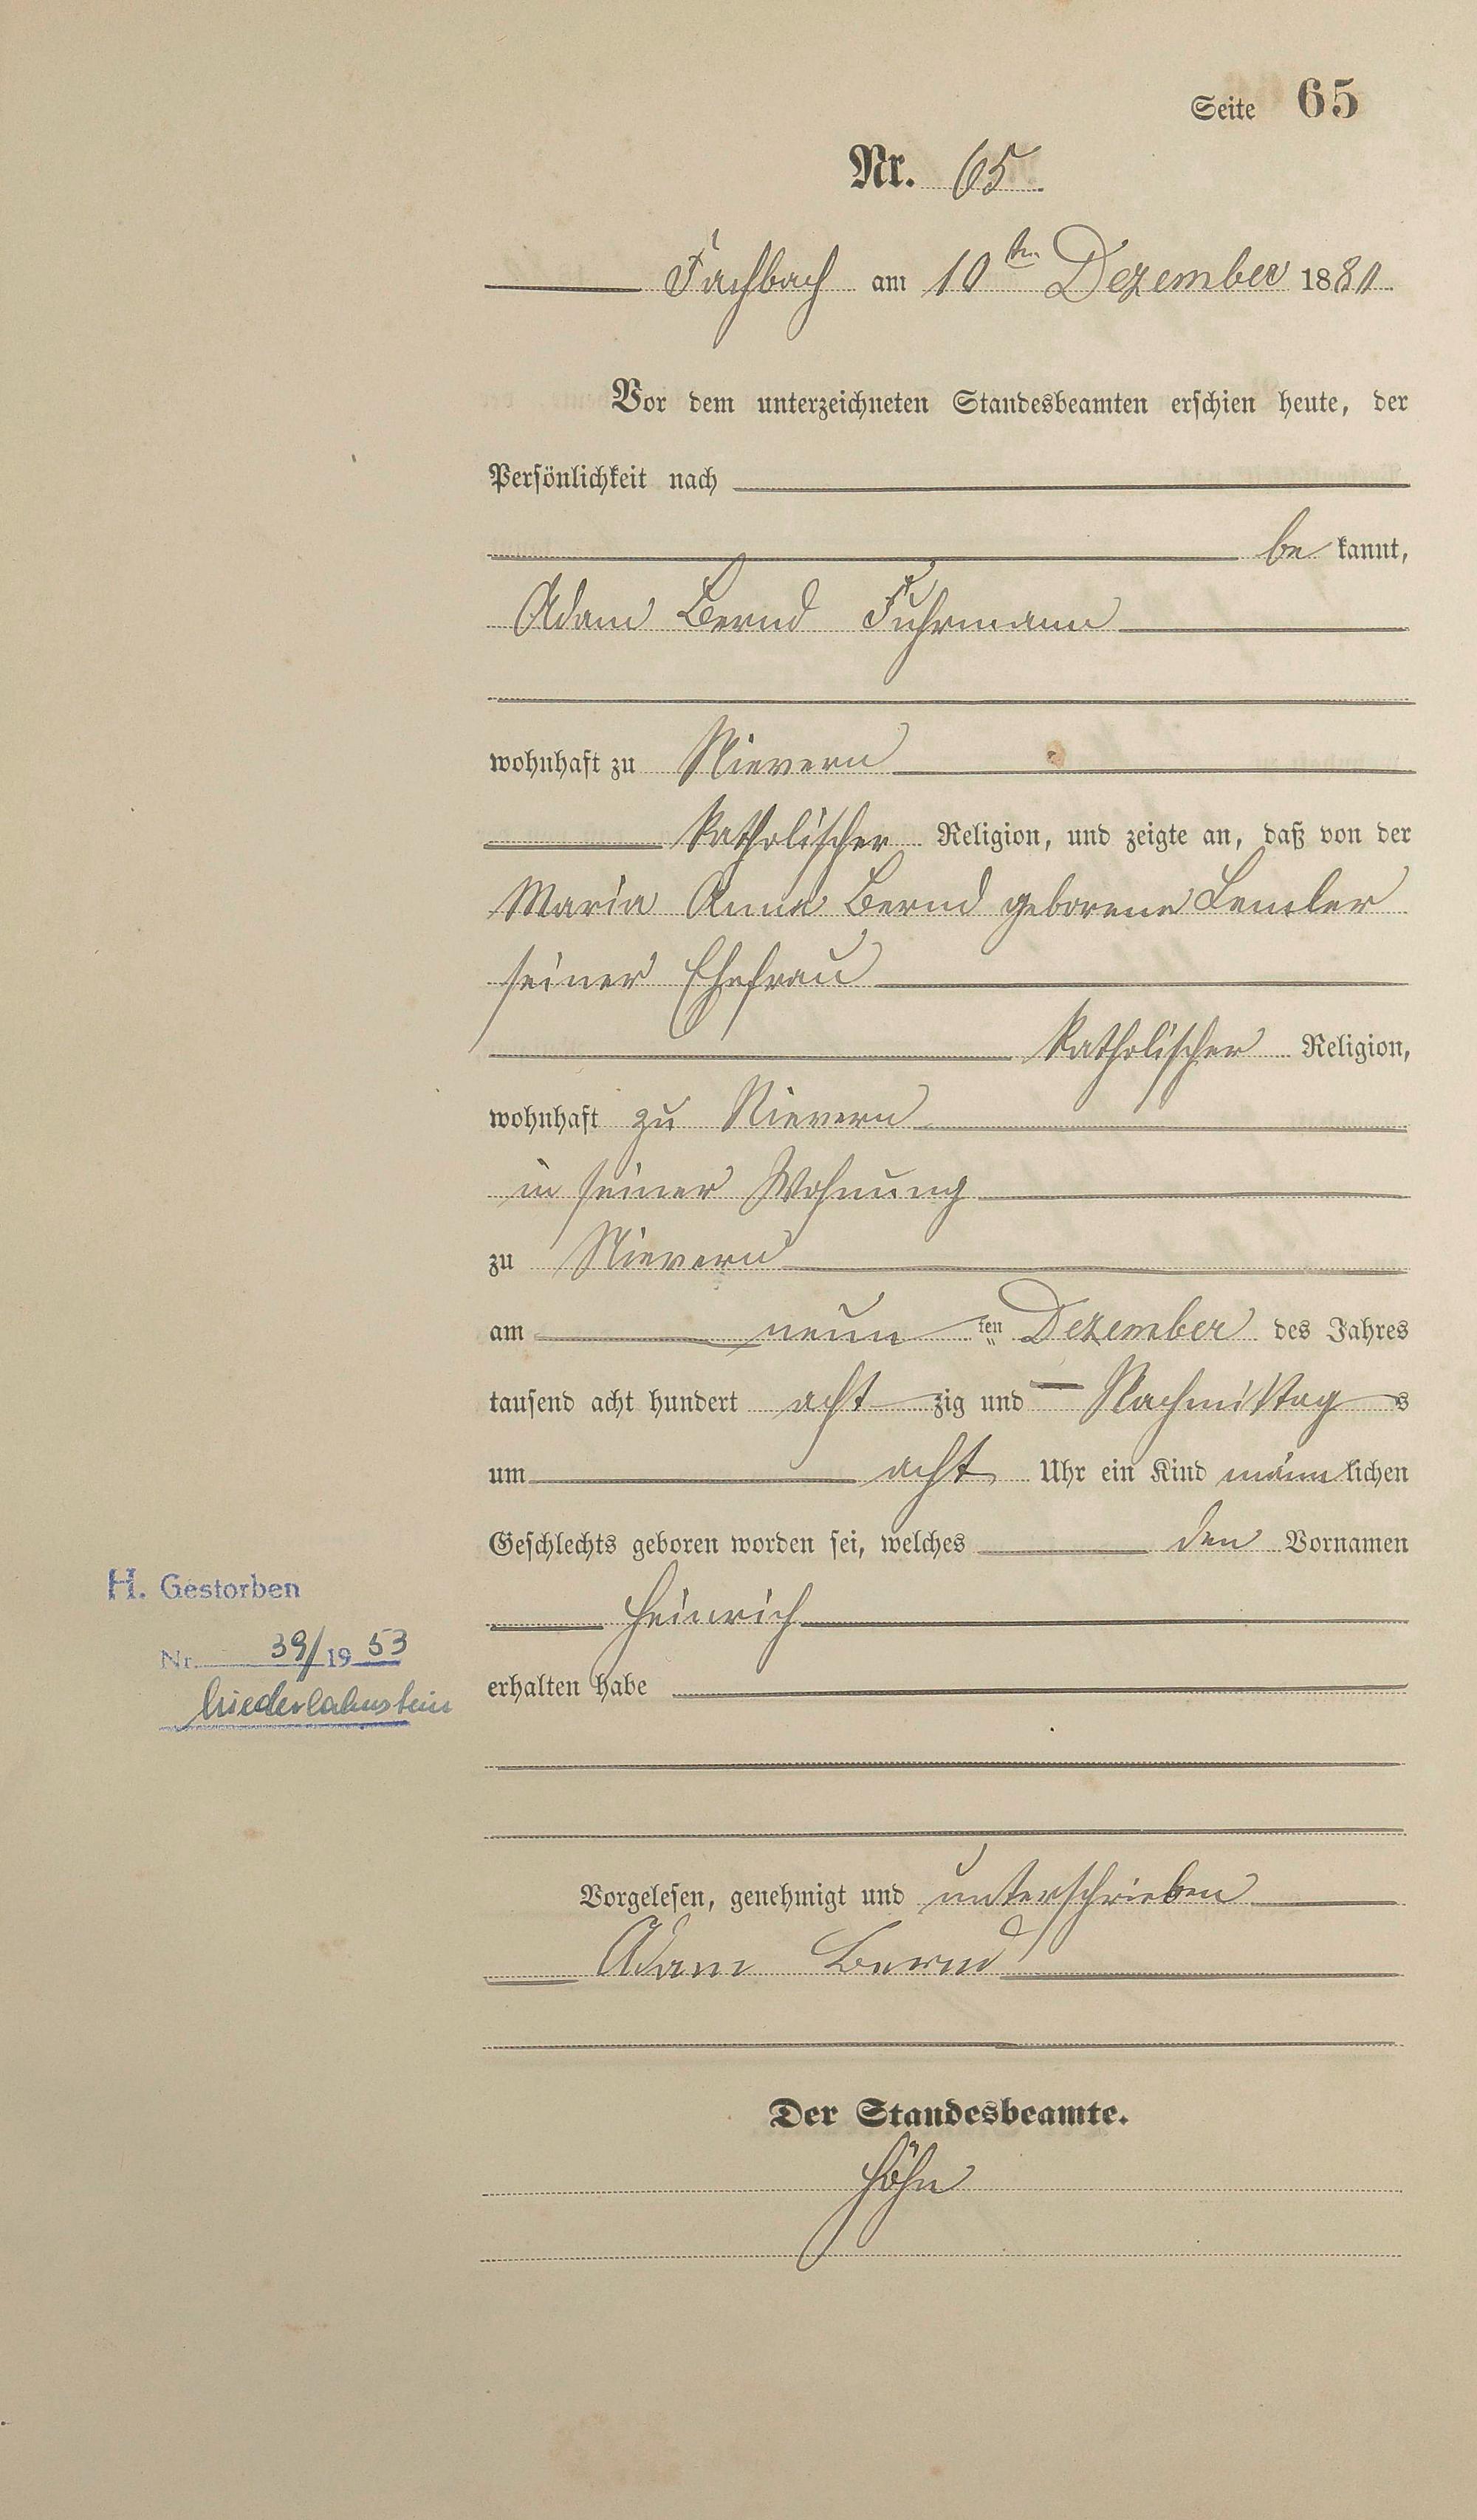 Seite 65
Nr. 65
Fachbach am 10ten Dezember 1880
Vor dem unterzeichneten Standesbeamten erschien heute, der
Persönlichkeit nach
be kannt,
Adam Bernd Fuhrmann
wohnhaft zu Nievern
katholischer Religion, und zeigte an, daß von der
Maria Anna Bernd geborene Lemler
seiner Ehefrau
katholischer Religion,
wohnhaft zu Nievern
in seiner Wohnung
zu Nievern
am neun ten Dezember des Jahres
tausend acht hundert acht zig und — Nachmittag s
um acht Uhr ein Kind männ lichen
Geschlechts geboren worden sei, welches den Vornamen
Heinrich
erhalten habe
H. Gestorben
Nr. 39/1953
Niederlahnstein
Vorgelesen, genehmigt und unterschrieben
Adam Bernd
Der Standesbeamte.
Höhn